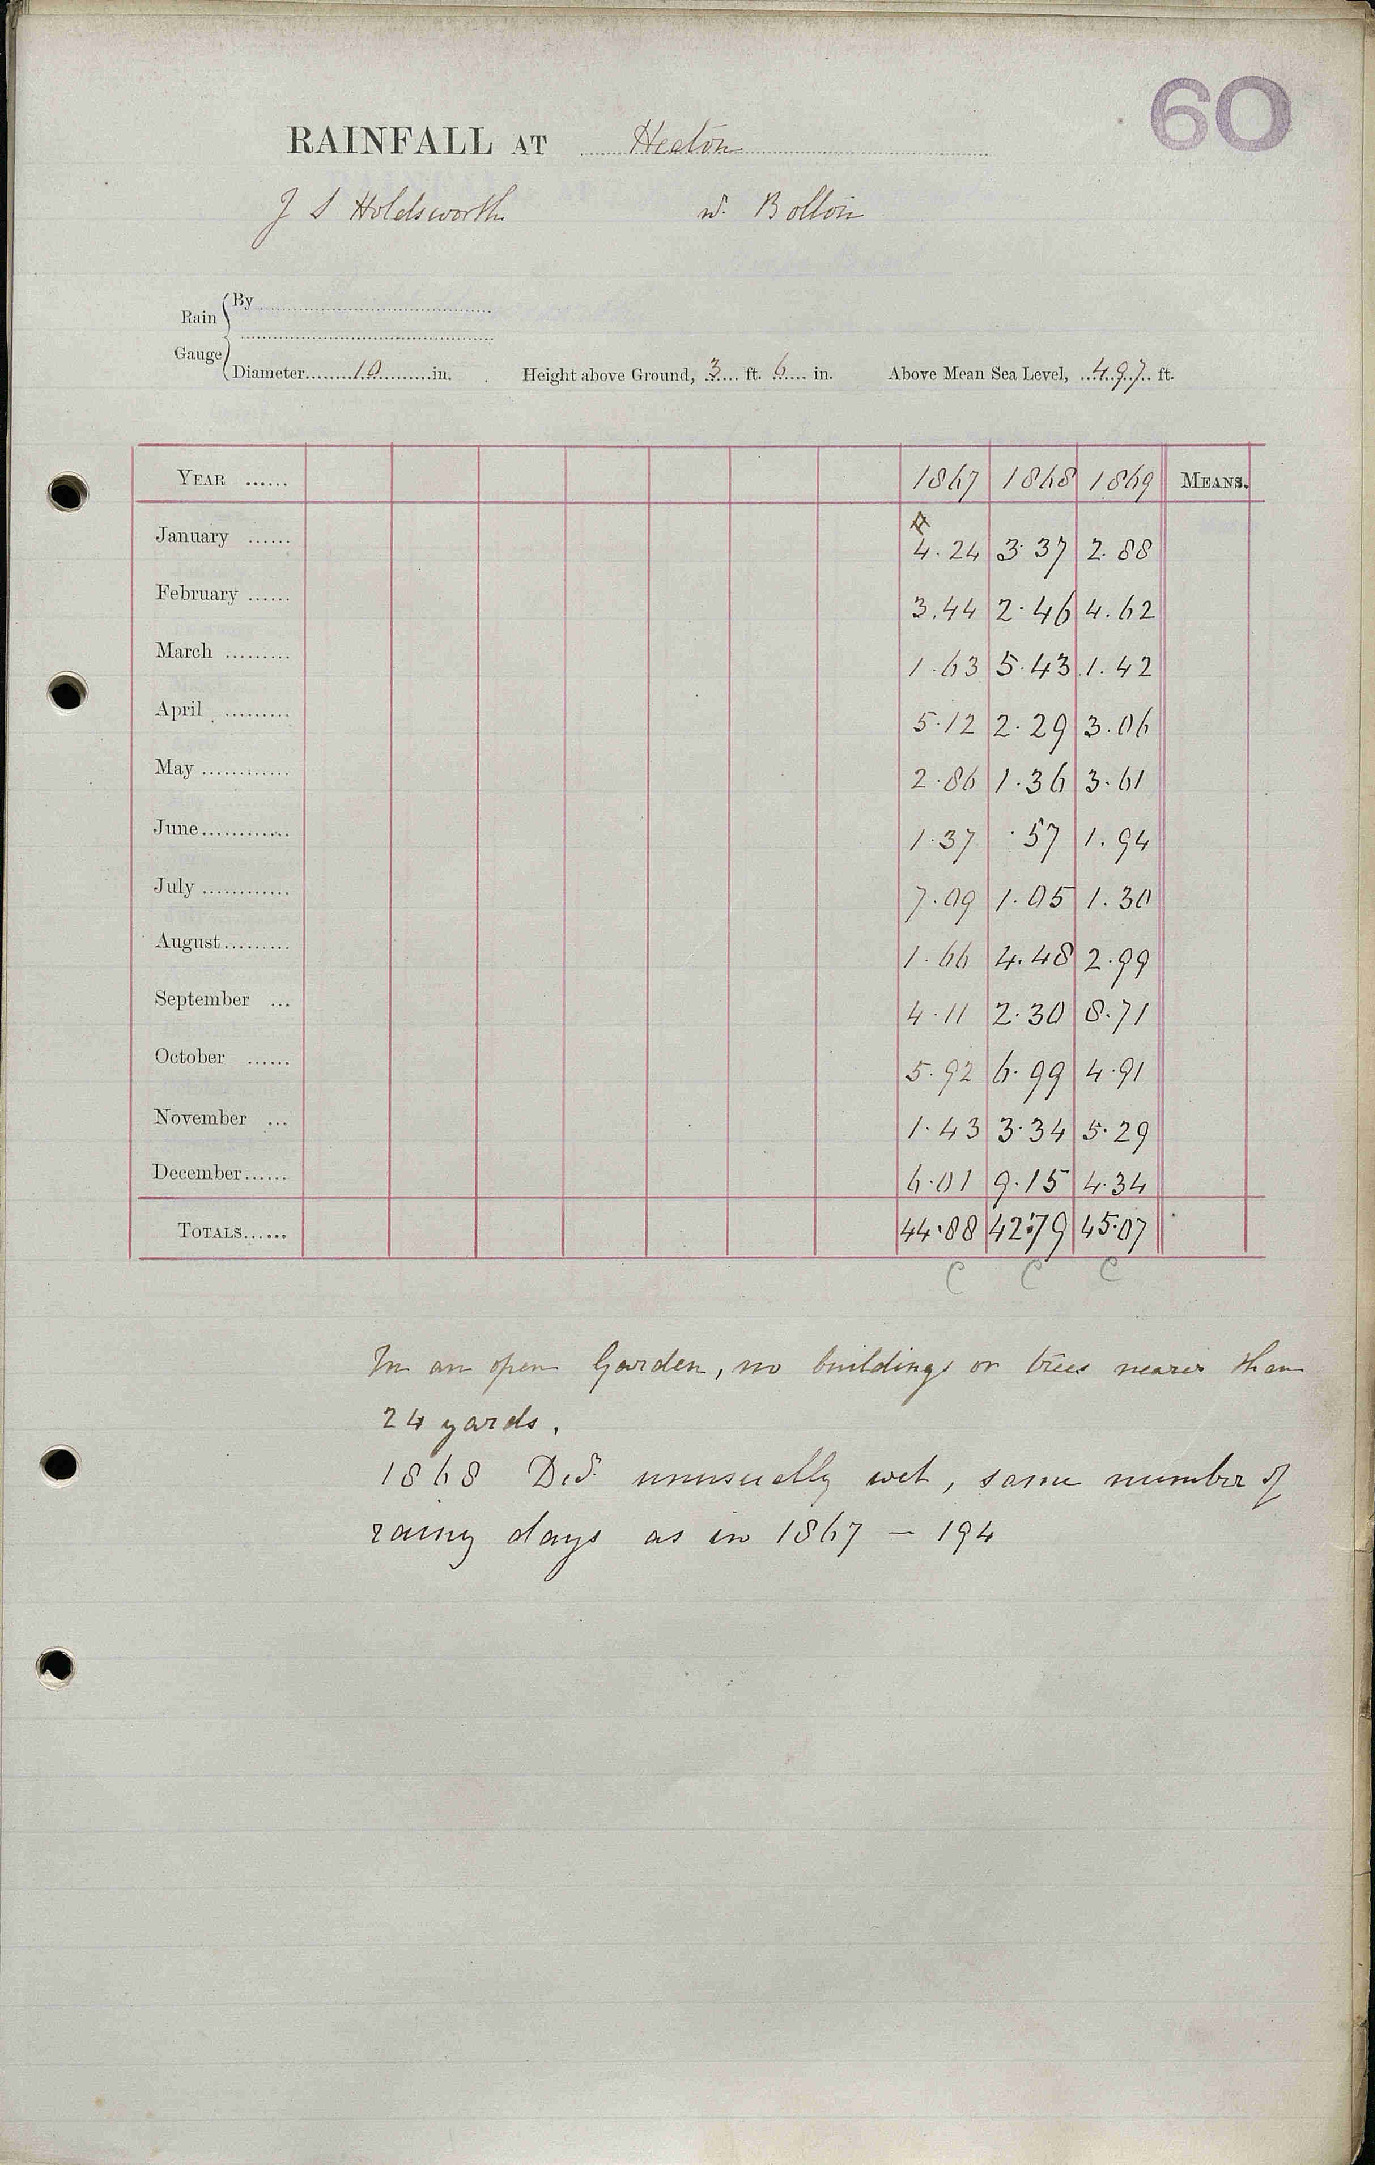 60
RAINFALL AT Heaton
J S Holdsworth nr. Bolton
Rain Gauge { By
Diameter 10 in. Height above Ground, 3 ft. 6 in. Above Mean Sea Level, 497 ft.
YEAR ...... 1867 1868 1869 MEANS.
January ...... 4.24 3.37 2.88
February ...... 3.44 2.46 4.62
March ......... 1.63 5.43 1.42
April ......... 5.12 2.29 3.06
May ............ 2.86 1.36 3.61
June ............ 1.37 .57 1.94
July ............ 7.09 1.05 1.30
August ......... 1.66 4.48 2.99
September ... 4.11 2.30 8.71
October ...... 5.92 6.99 4.91
November ... 1.43 3.34 5.29
December ...... 6.01 9.15 4.34
TOTALS ...... 44.88 42.79 45.07
C C C
In an open Garden, no buildings or trees nearer than
24 yards.
1868 Decr. unusually wet, same number of
rainy days as in 1867 — 194